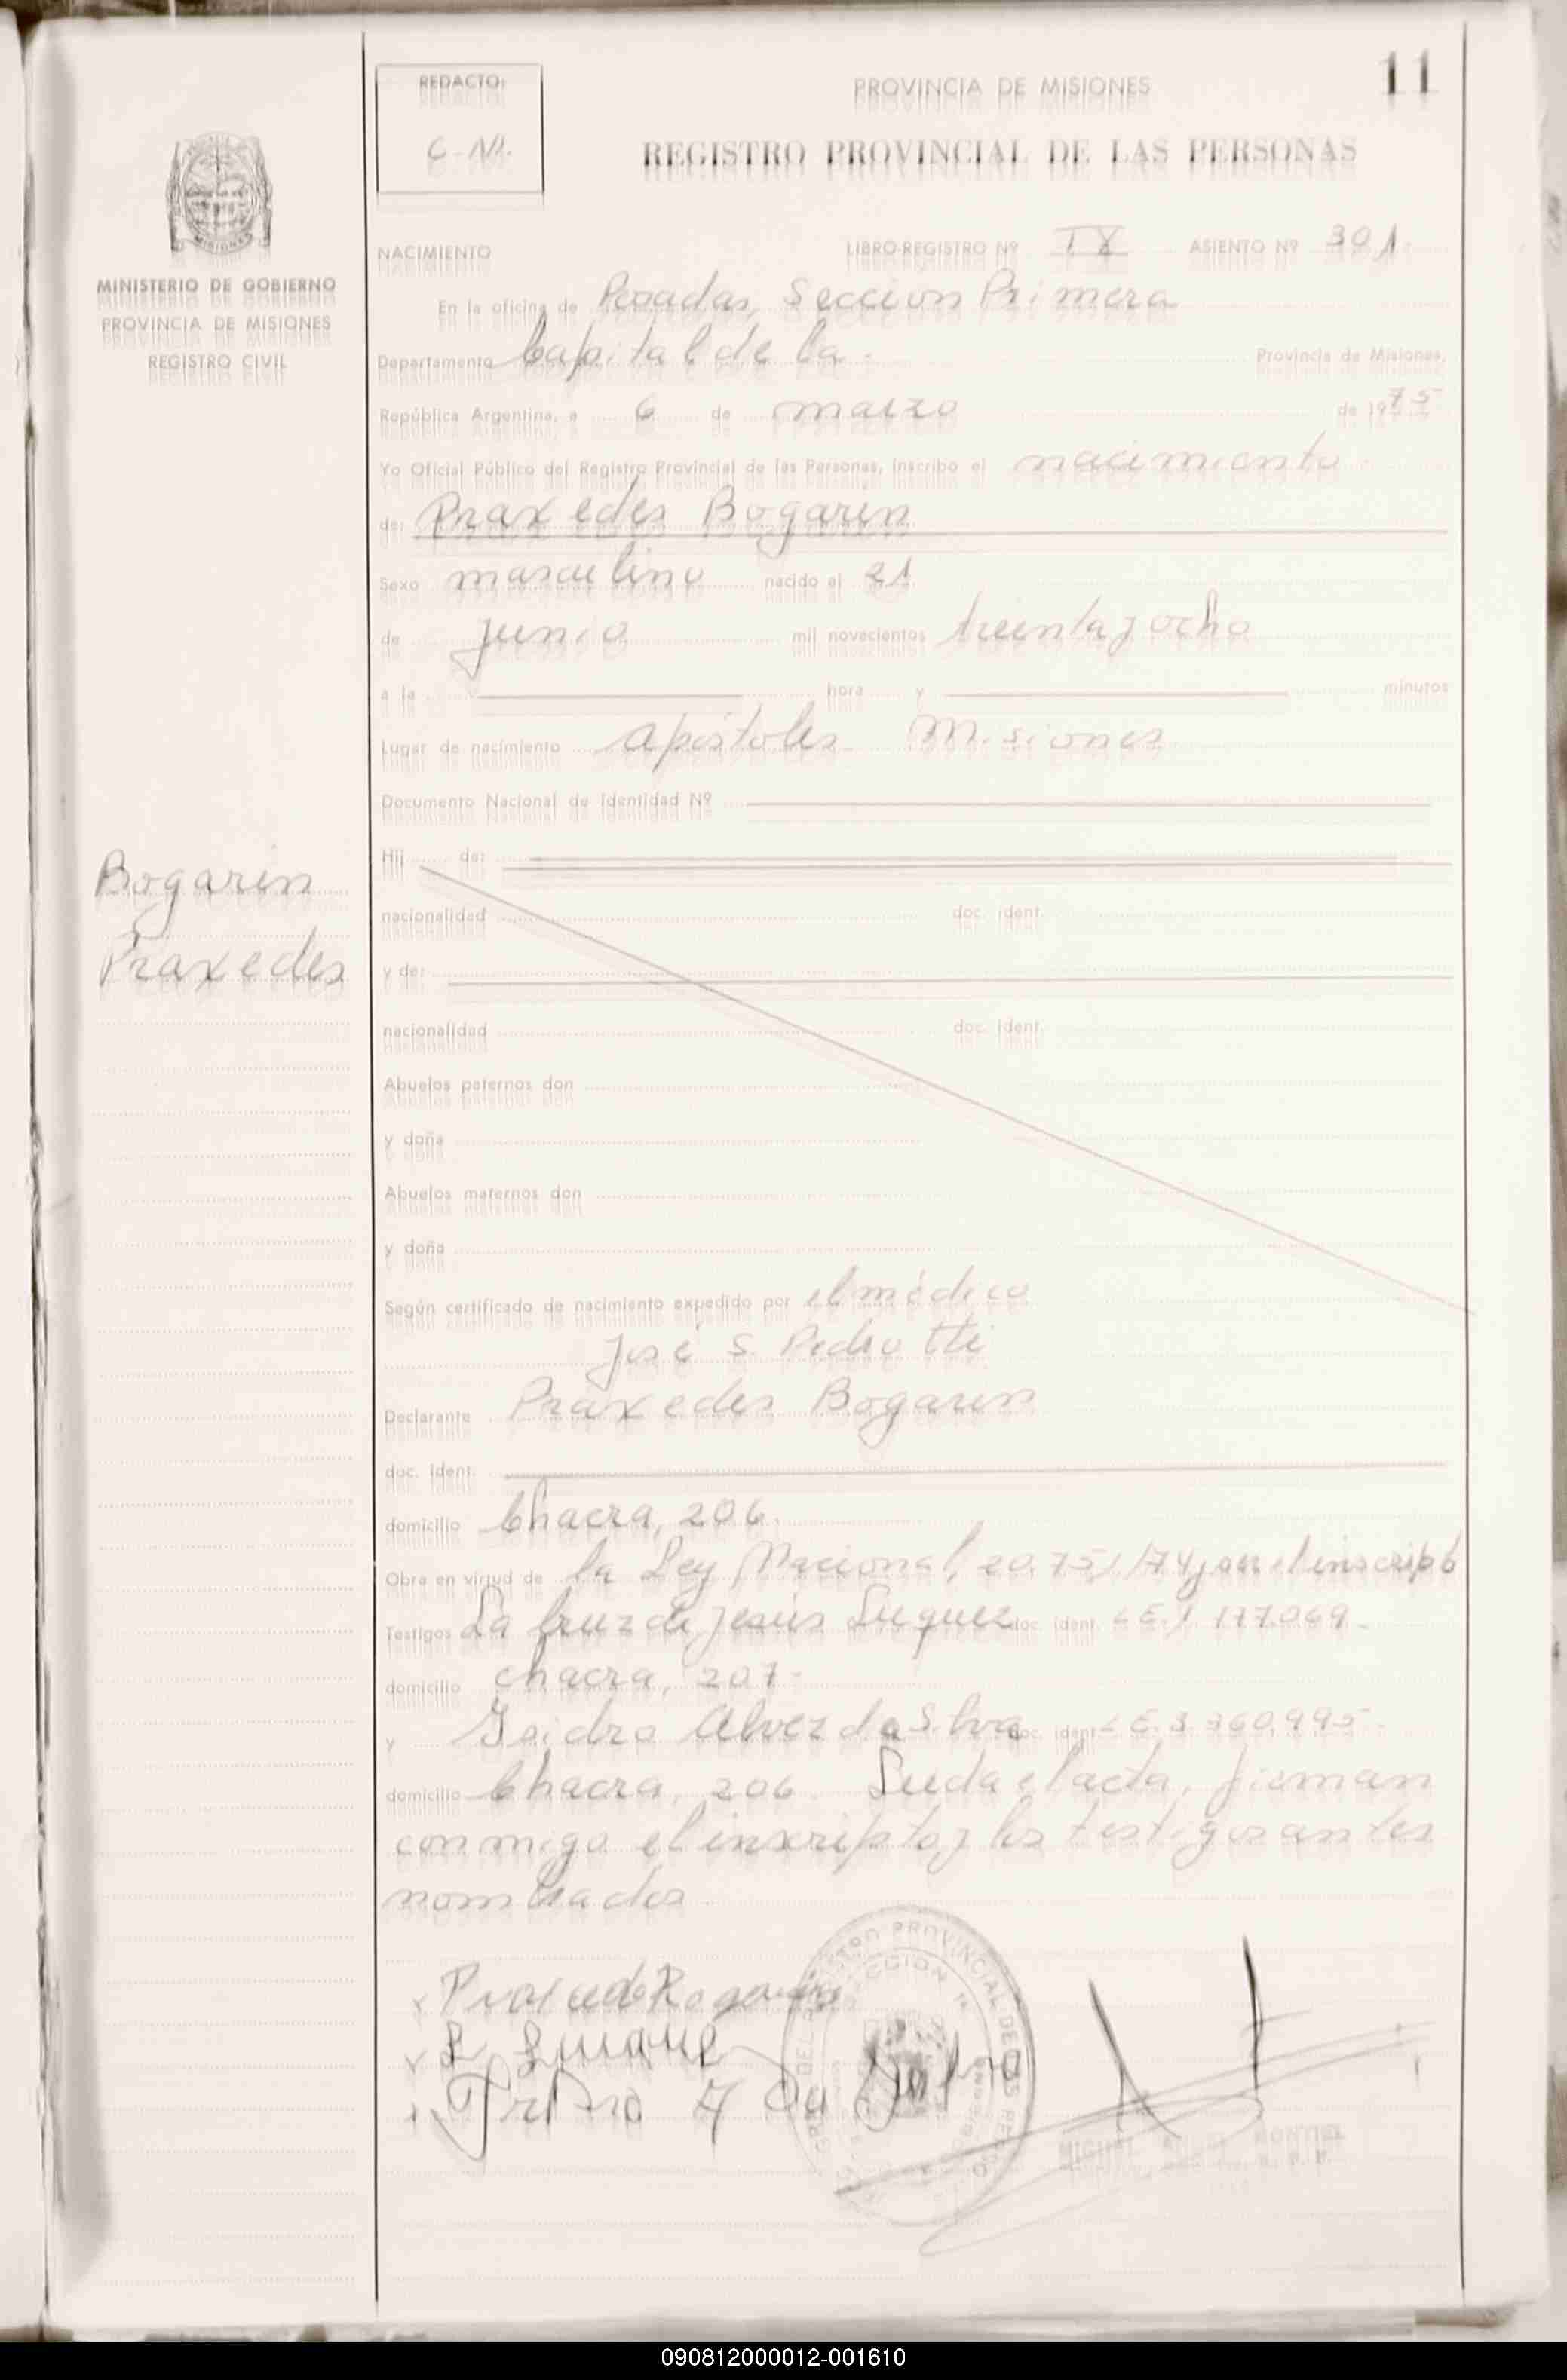 11
REDACTO:
C-M.
PROVINCIA DE MISIONES
REGISTRO PROVINCIAL DE LAS PERSONAS
MINISTERIO DE GOBIERNO
PROVINCIA DE MISIONES
REGISTRO CIVIL
NACIMIENTO LIBRO-REGISTRO Nº IX ASIENTO Nº 301.
En la oficina de Posadas, Sección Primera
Departamento Capital de la. Provincia de Misiones,
República Argentina, a 6 de marzo de 1975
Yo Oficial Público del Registro Provincial de las Personas, inscribo el nacimiento
de: Praxedes Bogarin
Sexo masculino nacido el 21
de junio mil novecientos treinta y ocho
a la hora y minutos
Lugar de nacimiento Apóstoles Misiones.
Documento Nacional de Identidad Nº
Hij de:
Bogarin
Praxedes
nacionalidad doc. ident.
y de:
nacionalidad doc. ident.
Abuelos paternos don
y doña
Abuelos maternos don
y doña
Según certificado de nacimiento expedido por el médico
José S. Pedrotti
Declarante Praxedes Bogarin
doc. ident.
domicilio Chacra, 206.
Obra en virtud de la Ley Nacional, 20.751/74 y el inscripto
Testigos La Cruz de Jesús Luquez doc. ident. LE. 1.177.069.
domicilio chacra, 207-
y Isidro Alvez da Silva doc. ident. LE. 3.360.995-.
domicilio Chacra, 206. Leida el acta, firman
conmigo el inscripto y los testigos antes
nombrados
REGISTRO PROVINCIAL DE LAS PERSONAS
SECCION 1ª
MIGUEL ANGEL MONTIEL
090812000012-001610